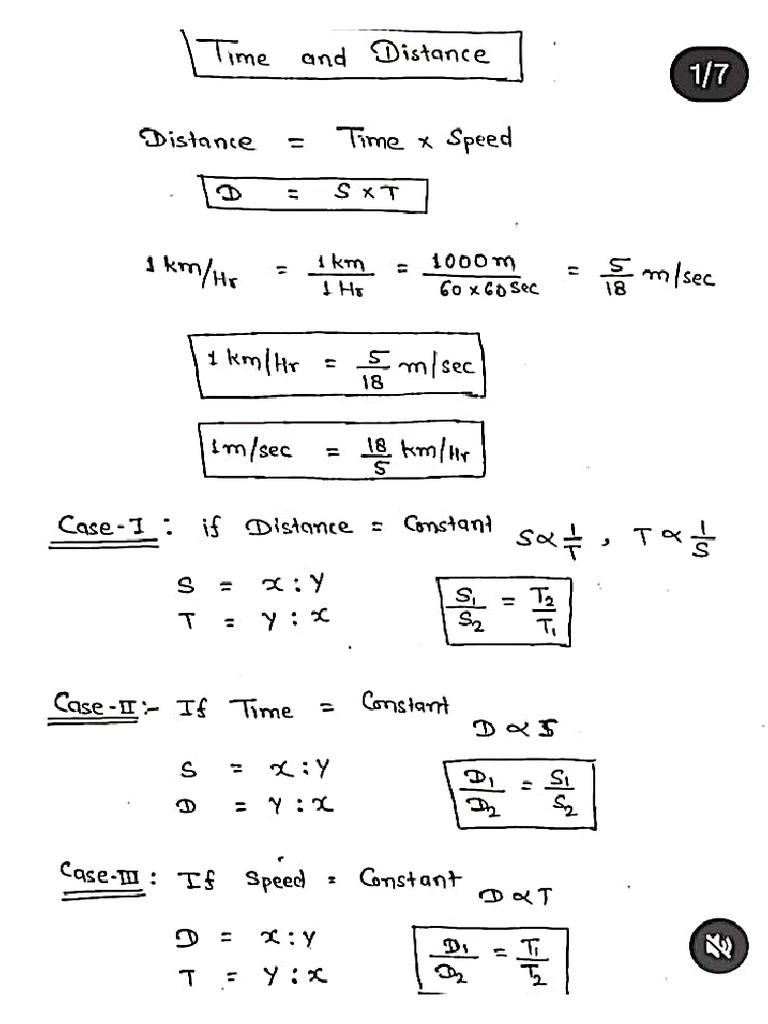 Time and Distance
1/7
Distance = Time x Speed
D = S x T
1 km/Hr = 1 km / 1 Hr = 1000 m / 60 x 60 Sec = 5/18 m/sec
1 km/Hr = 5/18 m/sec
1 m/sec = 18/5 km/Hr
Case-I : if Distance = Constant S ∝ 1/T , T ∝ 1/S
S = x : y
T = y : x
S₁/S₂ = T₂/T₁
Case-II :- If Time = Constant
D ∝ S
S = x : y
D = y : x
D₁/D₂ = S₁/S₂
Case-III : If Speed = Constant
D ∝ T
D = x : y
T = y : x
D₁/D₂ = T₁/T₂